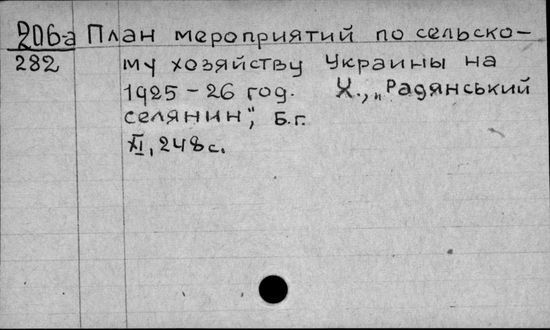 206-а План мероприятий по сельско-
282 му хозяйству Украины на
1925-26 год. Х., „Радянський
селянин", Б.г.
XI, 248 с.